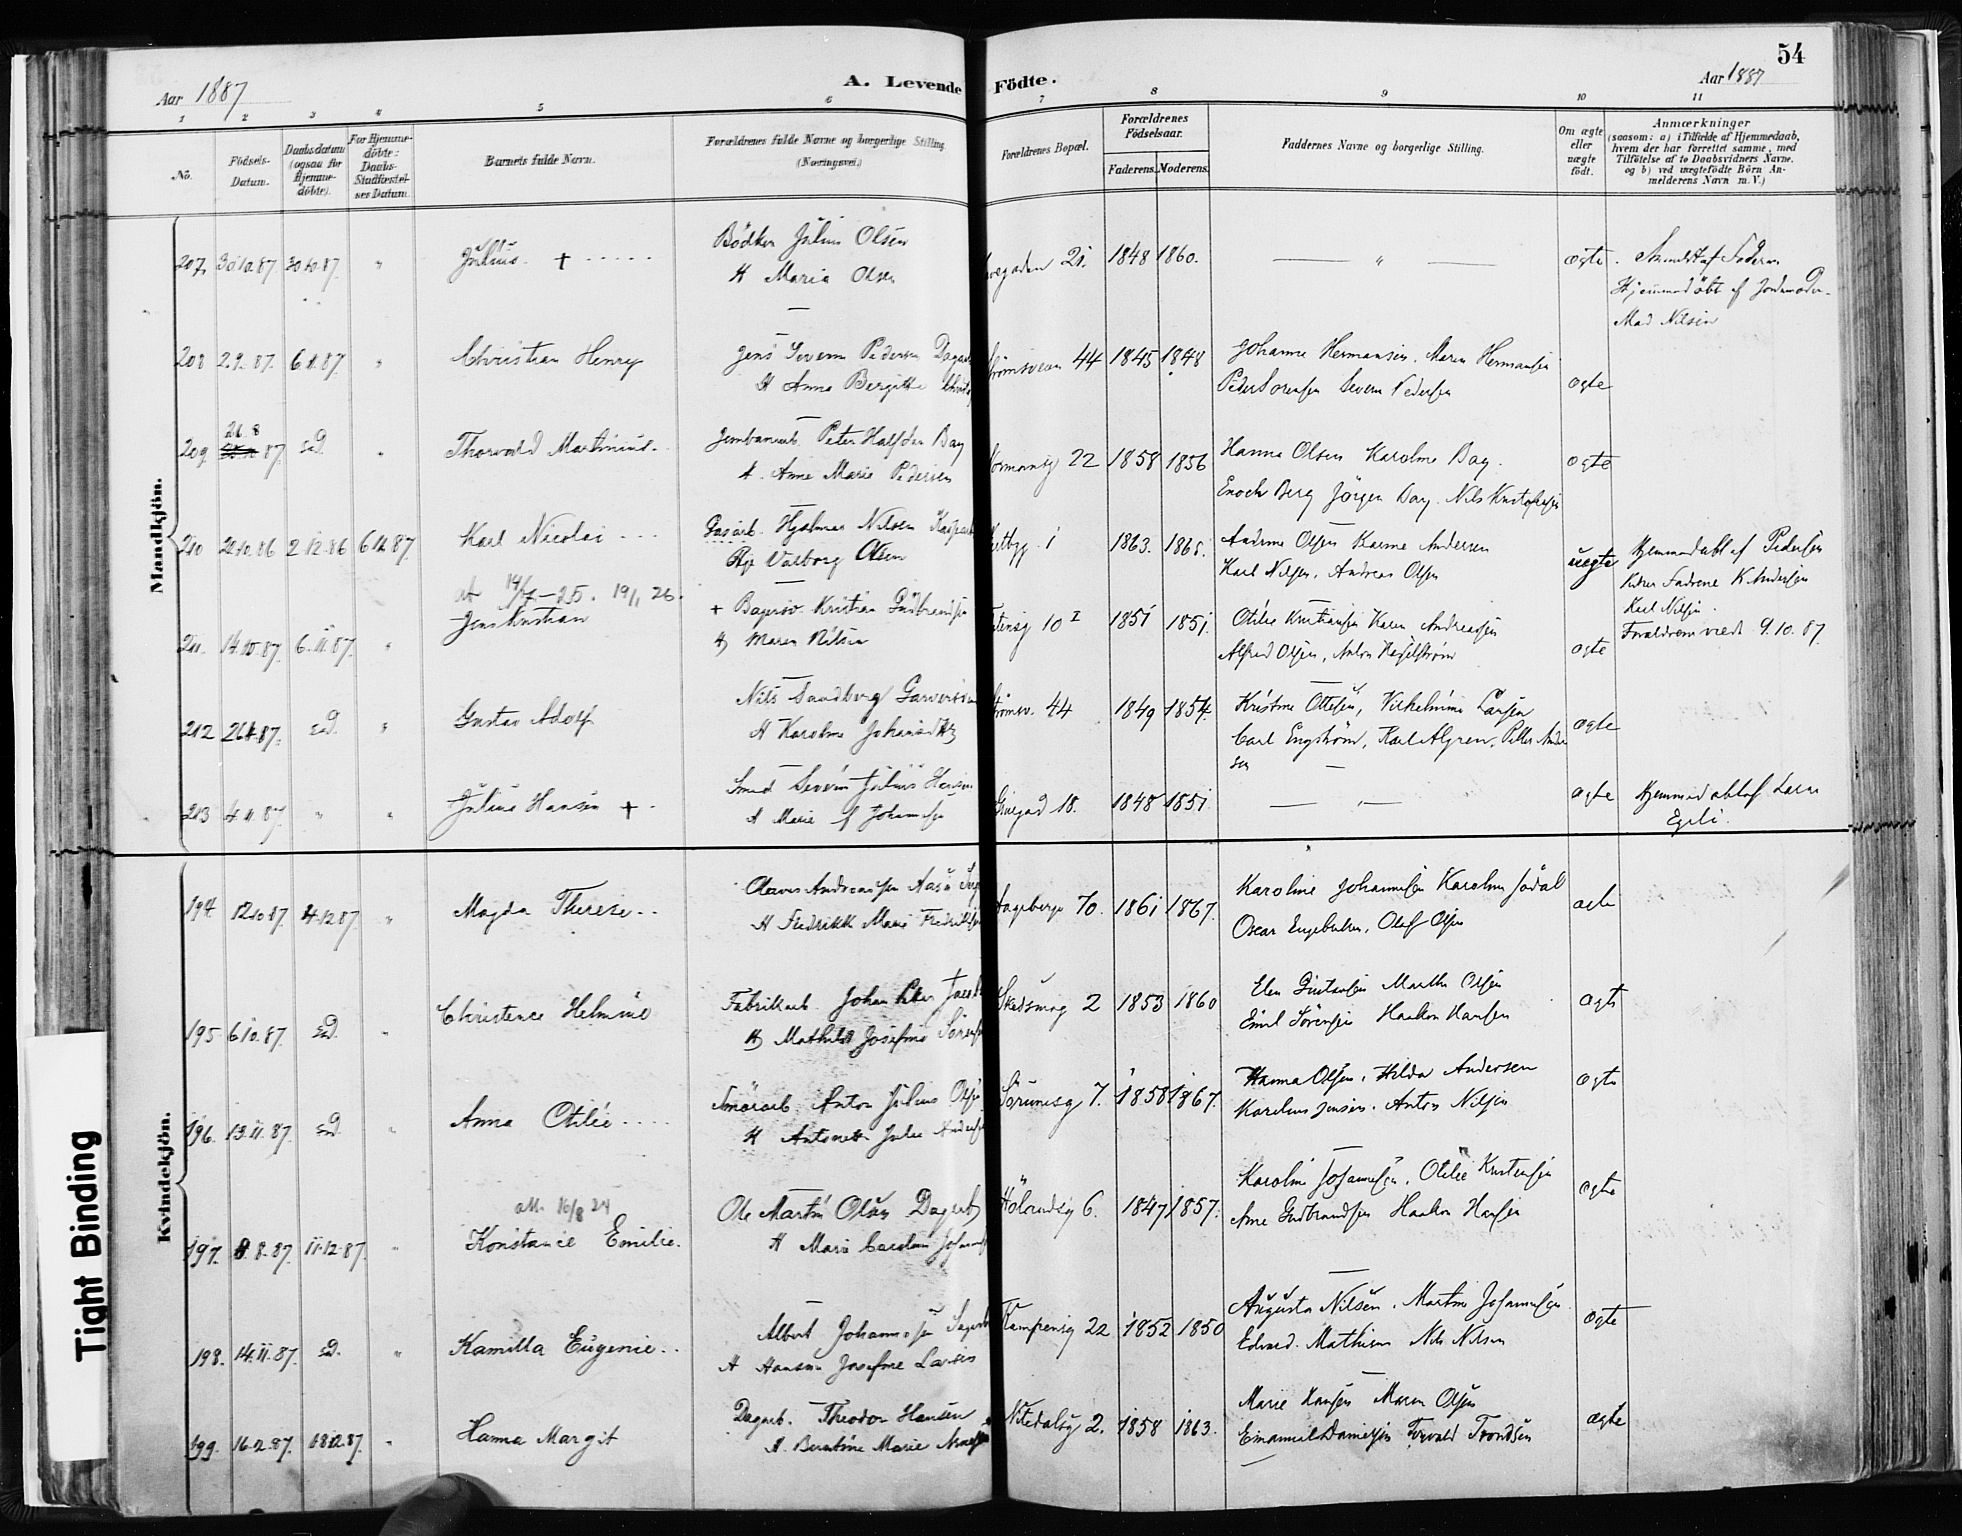 54
Aar 1887
A. Levende Födte.
Aar 1887
1 2 3 4 5 6 7 8 9 10 11
No.
Födsels-Datum.
Daabsdatum (ogsaa for Hjemme-döbte).
For Hjemme-döbte: Daabs-Stadfæstel-ses Datum.
Barnets fulde Navn.
Forældrenes fulde Navne og borgerlige Stilling (Næringsvei.)
Forældrenes Bopæl.
Forældrenes Födselsaar.
Faderens. Moderens.
Faddernes Navne og borgerlige Stilling.
Om ægte eller uægte födt.
Anmærkninger
(saasom: a) i Tilfælde af Hjemmedaab, hvem der har forrettet samme, med Tilföielse af to Daabsvidners Navne, og b) ved uægtefödte Börn An-melderens Navn m. V.)
Mandkjön.
207. 30.10.87. 30.10.87. " Julius. + Bödker Julius Olsen 21. 1848 1860. — " — ægte.
H Maria Olsen
Hjemmedöbt af Jordmoder
Mad Nilsen
208 2.9.87. 6.11.87. " Christian Henry Jens Severin Pedersen 44 1845 1848 Johanne Hermansen. Maren Hermansen
H Anna Bergitte Peder Sorensen Severin Pedersen ægte
209. 26 8 87. Ed. " Thorvald Martinius. Jernbanearb. Peter Halfdan Bay 22 1858 1856 Hanna Olsen Karoline Bay. ægte
H. Anne Marie Pedersen Enoch Berg Jörgen Bay. Nils Kristofersen
210 20.10.86 2.12.86 6.11.87. Karl Nicolai Gasarb. Hjalmar Nilsen 1 1863. 1865. Andrine Olsen Karine Andersen uægte Hjemmedöbt af Pedersen
Pige Valborg Olsen Karl Nilsen, Andreas Olsen
K Andersen
Karl Nilsen.
Forældrene viede 9.10.87.
att 14/7-25. 19/1 26.
211. 14.10.87. 6.11.87. " Jens Kristian + Bagersv. Kristian Gudbrandsen 10 I 1851 1851. Otilie Kristiansen Karen Andreasen
H Maren Nilsen Alfred Olsen, Anton Hesselström ægte
212 26.1.87. Ed. " Gustav Adolf Nils Sandberg Garversv. Strömsv. 44 1849 1854. Kristine Ottesen, Vilhelmine Larsen ægte
H Karoline Johansd. Carl Engström, Karl Algren, Petter Ander
sen
213 4.11.87. " " Julius Hansen + Smed Severin Julius Hansen 18. 1848 1851. — " — ægte Hjemmedöbt af Laura
H Marie Johannesen Egeli.
Kvindekjön.
194. 12.10.87. 4.12.87 " Magda Therese. Olaves Andreassen 70. 1861 1867. Karoline Johannesen Karoline ægte
H Fredrikke Marie Fredriksen Oscar Engebretsen, Olaf Olsen
195 6.10.87. Ed. " Christence Helmine Fabrikarb. Johan Peter Skedsmog 2 1853 1860 Elen Gustavsen Marthe Olsen ægte
H Mathilde Josefine Sörensen Emil Sörensen Haakon Hansen
196. 13.11.87. Ed. " Anna Otilie Anton Julius Olsen Sörumsg 7. 1858 1867. Hanna Olsen. Hilda Andersen ægte
H Antonette Julie Andersen Karelius Jensen. Anton Nilsen
att. 16/8 24
197. 8.8.87. 11.12.87. " Konstance Emilie. Ole Martin Olsen Dagarb Hölandsg 6. 1847 1857. Karoline Johannesen, Otilie Kristensen ægte
H Marie Caroline Johannesen Arne Gudbrandsen Haakon Hansen
198. 14.11.87. Ed. " Kamilla Eugenie. Albert Johannesen Kampensg 22 1852 1850 Augusta Nilsen. Martine Johannesen ægte
H Hansine Josefine Larsen Edvard Mathisen Nils Nilsen
199. 16.2.87. 18.12.87. " Hanna Margit Dagarb. Theodor Hansen Nitedalsg 2. 1858 1863. Marie Hansen Maren Olsen ægte
H. Berntine Marie Emanuel Danielsen Torvald Trondsen
Tight Binding